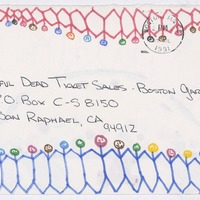 1991
FUL DEAD TICKET SALES - BOSTON GAR
P.O. BOX C-S 8150
SAN RAPHAEL, CA
94912